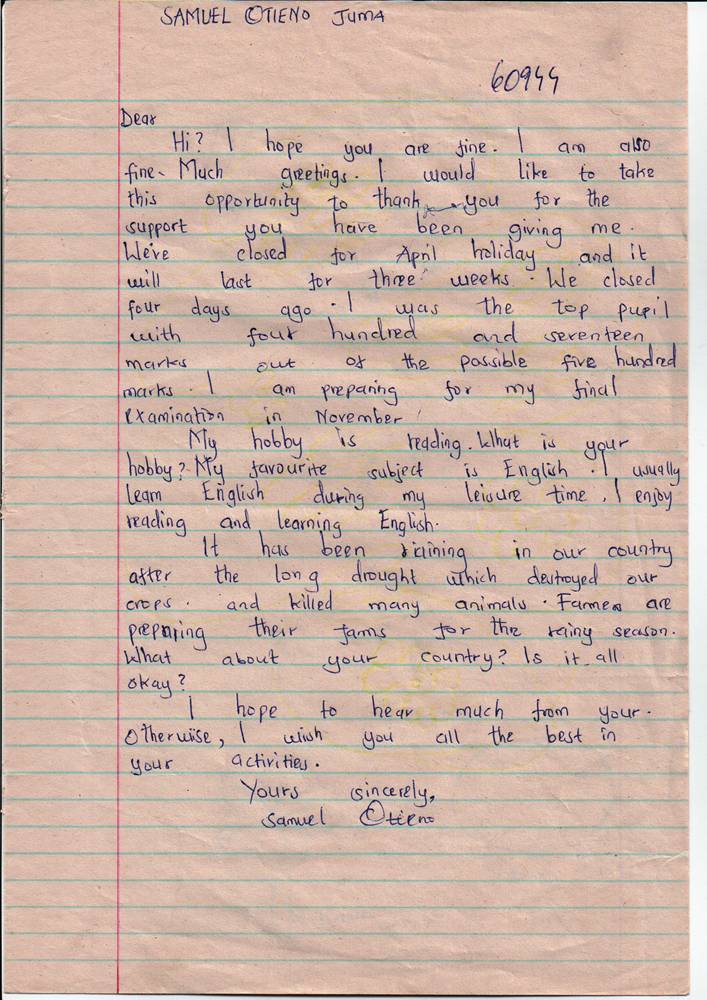 SAMUEL OTIENO JUMA
60944
Dear
Hi? I hope you are fine. I am also
fine. Much greetings. I would like to take
this opportunity to thank you for the
support you have been giving me.
We've closed for April holiday and it
will last for three weeks. We closed
four days ago. I was the top pupil
with four hundred and seventeen
marks out of the possible five hundred
marks. I am preparing for my final
examination in November.
My hobby is reading. What is your
hobby? My favourite subject is English. I usually
learn English during my leisure time. I enjoy
reading and learning English.
It has been raining in our country
after the long drought which destroyed our
crops. and killed many animals. Farmers are
preparing their farms for the rainy season.
What about your country? Is it all
okay?
I hope to hear much from your.
Otherwise, I wish you all the best in
your activities.
Yours sincerely,
Samuel Otieno